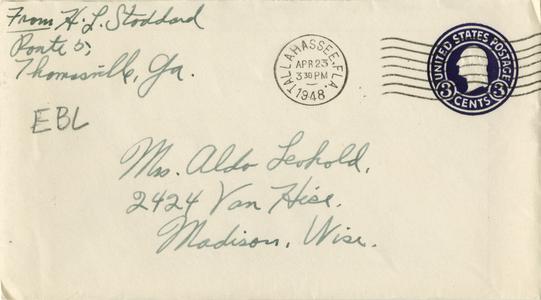 From H. L. Stoddard
Route 5,
Thomasville, Ga.
EBL
TALLAHASSEE, FLA.
APR 23
3 30 PM
1948
UNITED STATES POSTAGE
3 CENTS 3
Mrs. Aldo Leopold,
2424 Van Hise.
Madison, Wisc.